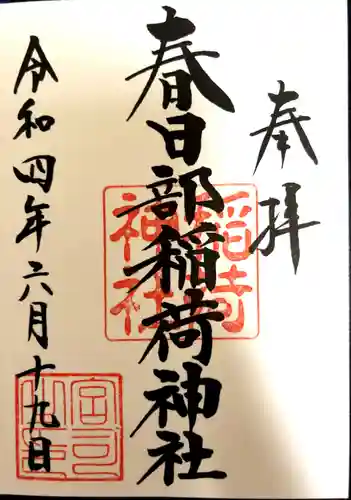 奉拝
春日部稲荷神社
稲荷神社
令和四年六月十九日